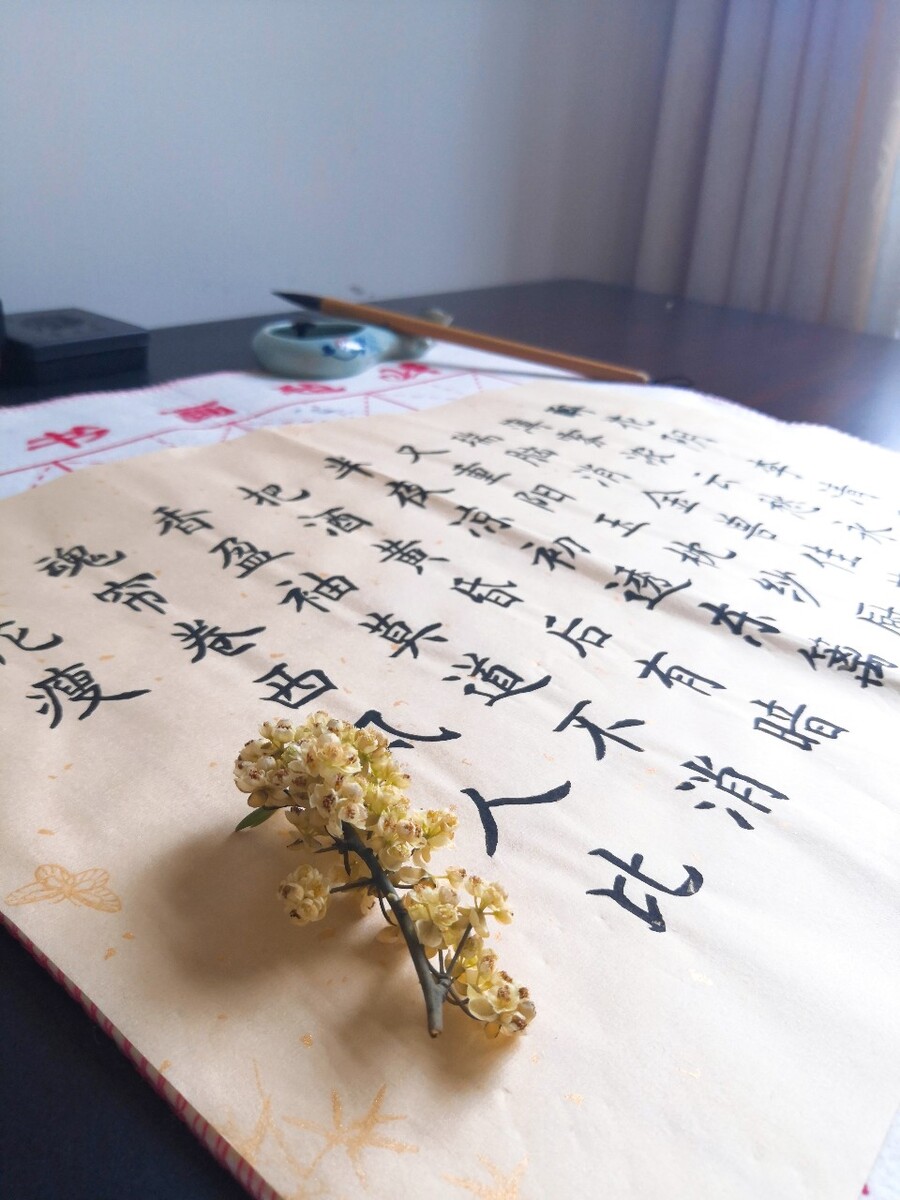 书画
醉花阴 李清
薄雾浓云愁永
瑞脑消金兽佳
又重阳玉枕纱厨
半夜凉初透东篱
把酒黄昏后有暗
香盈袖莫道不消
魂帘卷西风人比
花瘦